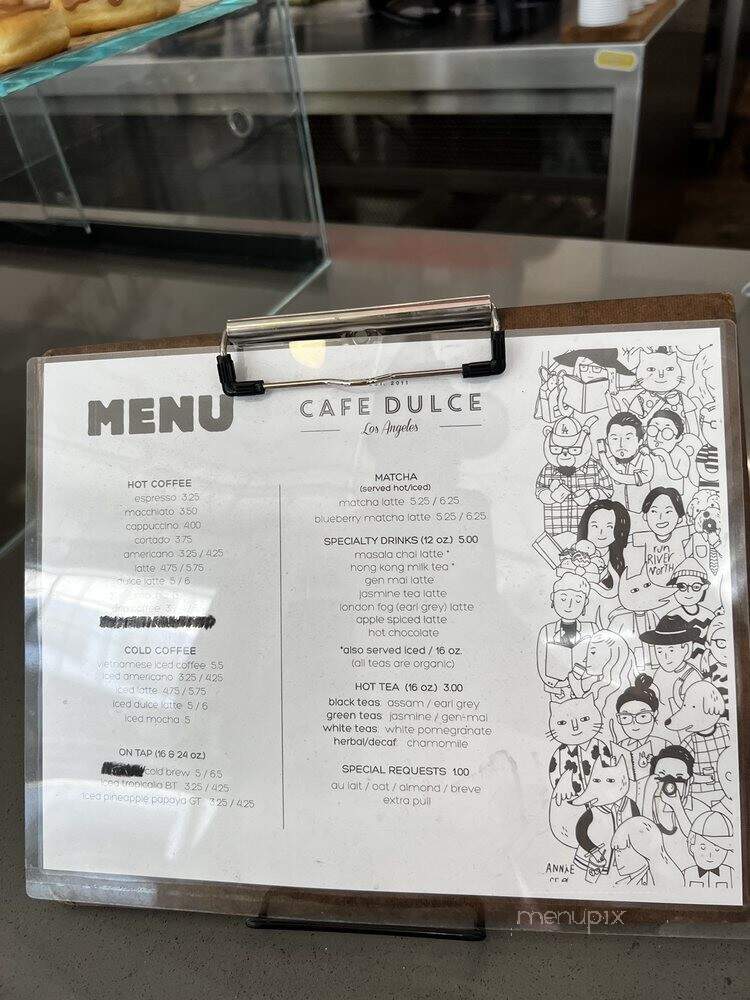 MENU
2011
CAFE DULCE
Los Angeles
HOT COFFEE
espresso 3.25
macchiato 3.50
cappuccino 4.00
cortado 3.75
americano 3.25 / 4.25
latte 4.75 / 5.75
dulce latte 5 / 6
coffee
COLD COFFEE
vietnamese iced coffee 5.5
iced americano 3.25 / 4.25
iced latte 4.75 / 5.75
iced dulce latte 5 / 6
iced mocha 5
ON TAP (16 & 24 oz.)
cold brew 5 / 6.5
iced tropicalia BT 3.25 / 4.25
iced pineapple papaya GT 3.25 / 4.25
MATCHA
(served hot/iced)
matcha latte 5.25 / 6.25
blueberry matcha latte 5.25 / 6.25
SPECIALTY DRINKS (12 oz.) 5.00
masala chai latte *
hong kong milk tea *
gen mai latte
jasmine tea latte
london fog (earl grey) latte
apple spiced latte
hot chocolate
*also served iced / 16 oz.
(all teas are organic)
HOT TEA (16 oz.) 3.00
black teas: assam / earl grey
green teas: jasmine / gen-mai
white teas: white pomegranate
herbal/decaf: chamomile
SPECIAL REQUESTS 1.00
au lait / oat / almond / breve
extra pull
LA
run
RIVER
NORTH
ANNiE
menupix